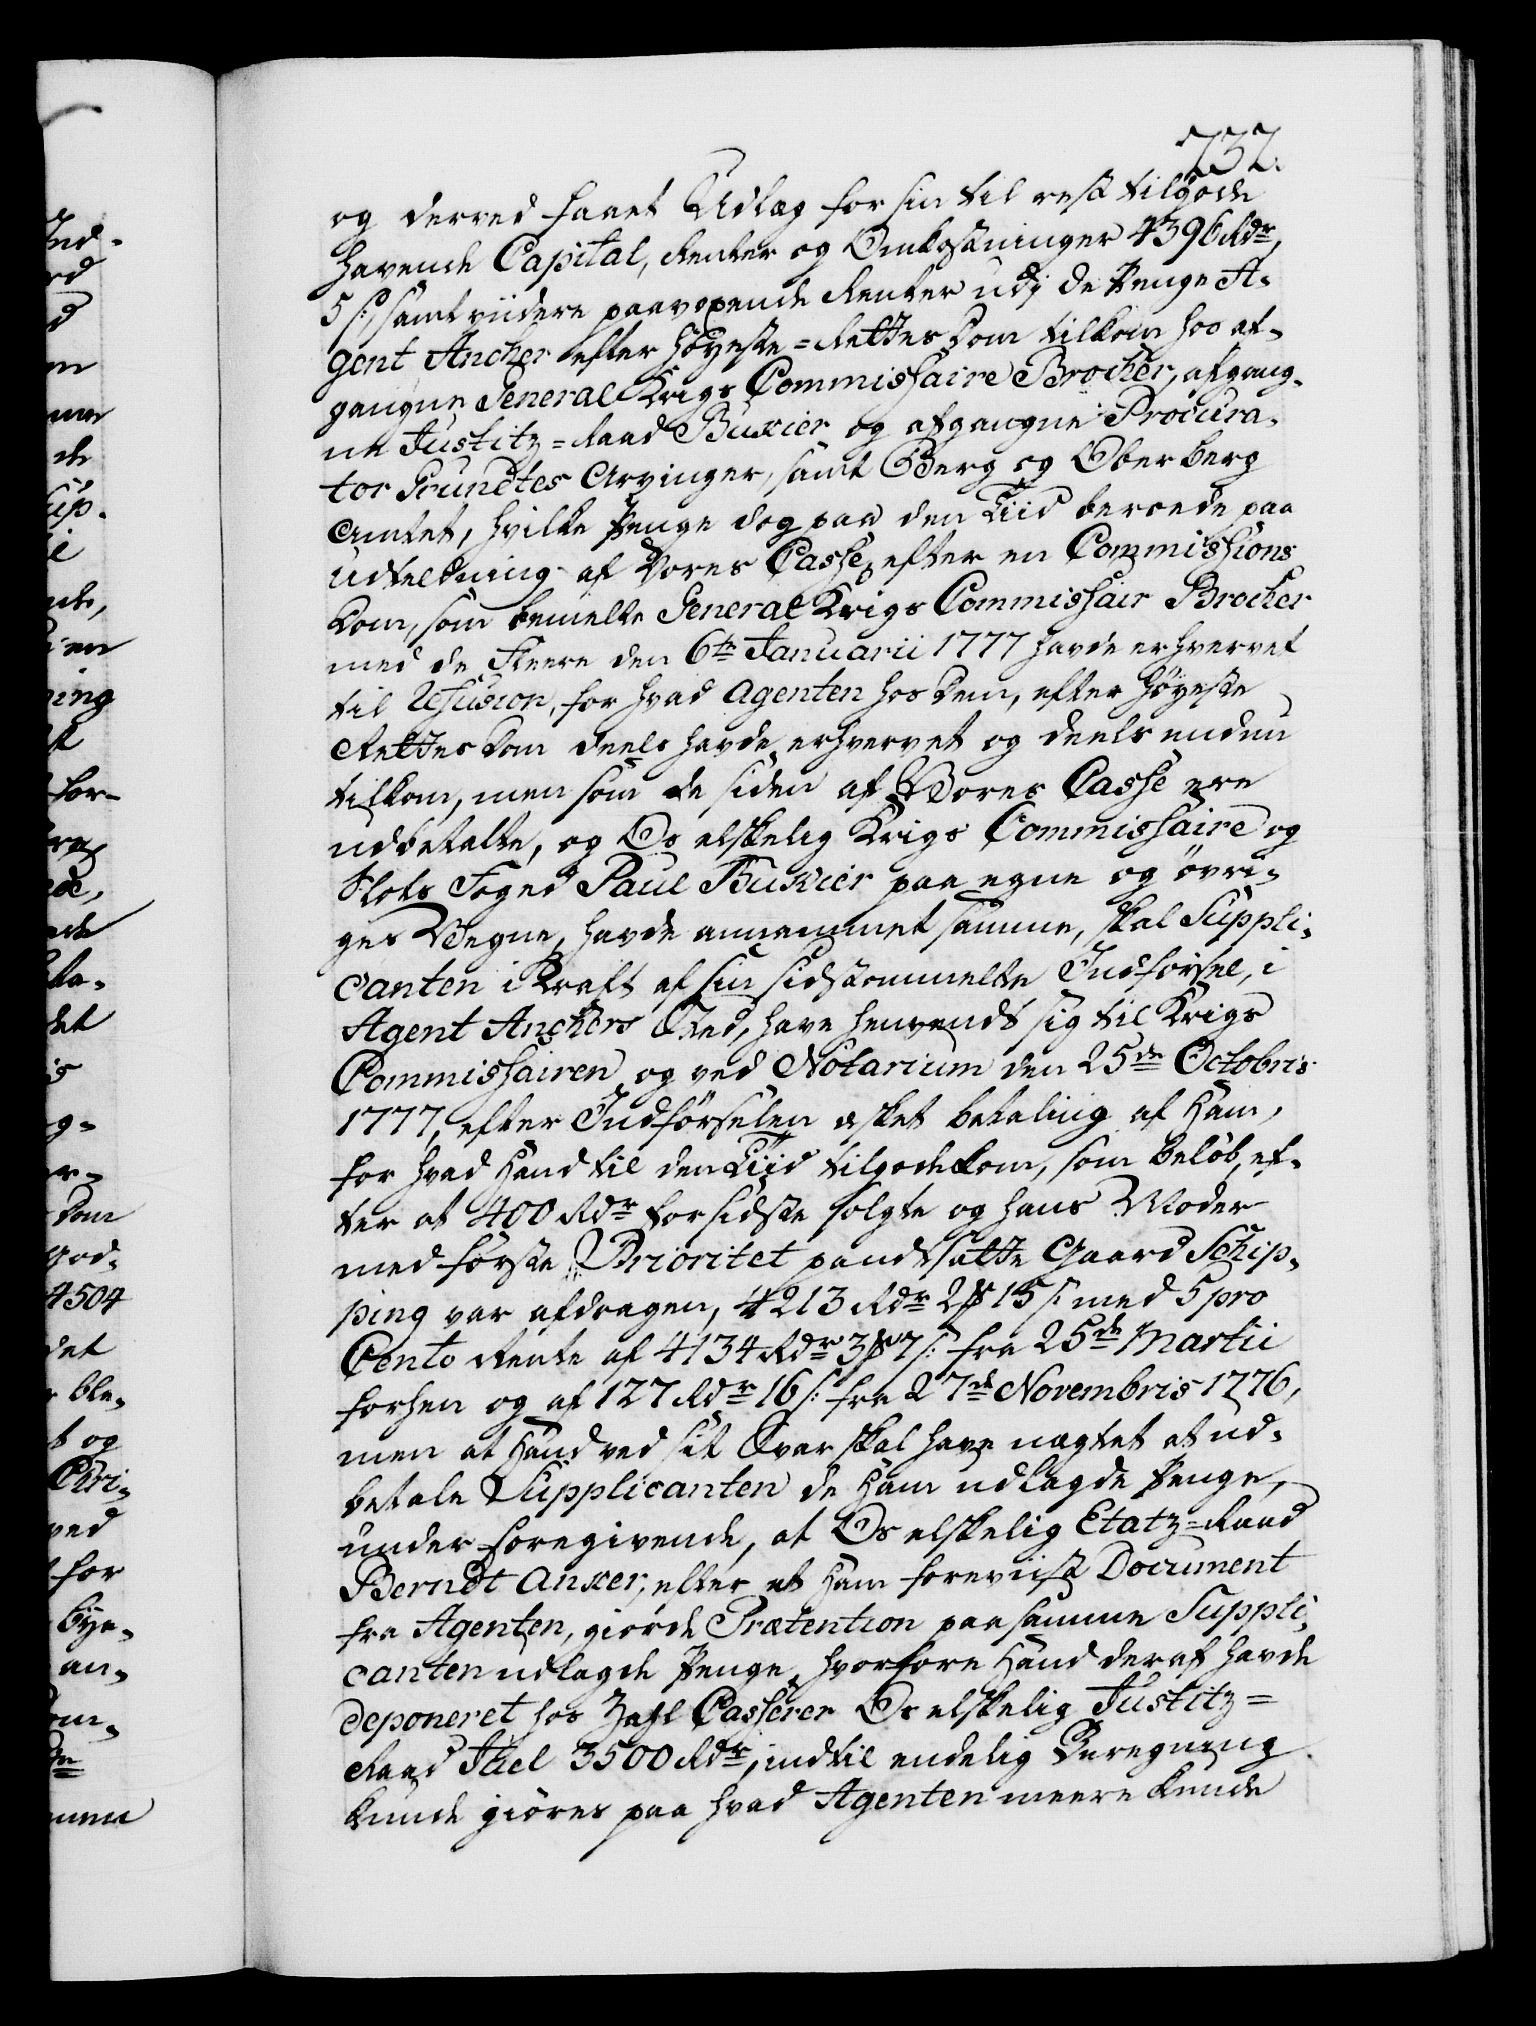 732.
og derved faaet Udlæg for sin til rest tilgode
havende Capital, Renter og Omkostninger 4396 Rdr,
5 s: samt viidere paavoxende Renter udj de Penge A-
gent Ancher efter Høyeste-Rettes Dom tilkom hos af-
gangne General Krigs Commissaire Brocher, afgang-
ne Justitz-Raad Buxier og afgangne Procura-
tor Grundtes Arvinger, samt Berg og Oberberg
Amtet, hvilke Penge dog paa den Tiid beroede paa
udbetalning af Vores Casse, efter en Commissions
Dom, som bemelte General Krigs Commissair Brocher
med de Fleere den 6te Januarii 1777 havde erhvervet
til Refusion, for hvad Agenten hos dem, efter Høyeste
Rettes Dom deels havde erhvervet og deels endnu
tilkom, men som de siden af Vores Casse ere
udbetalte, og Os elskelig Krigs Commissaire og
Slots Foged Paul Buxier paa egne og øvri-
ges Vegne, havde annammet samme, skal Suppli-
canten i Kraft af sin sidstommelte Indførsel, i
Agent Anchers Sted, have henvendt sig til Krigs
Commissairen, og ved Notarium den 25de Octobris
1777, efter Indførselen æsket betaling af Ham,
for hvad Hand til den Tiid tilgodekom, som beløb, ef-
ter at 400 Rdr for sidste solgte og hans Moder
med første Prioritet pandtsatte Gaard Schip-
ping var afdragen, 4213 Rdr 2 # 15 s: med 5 pro
Cento Rente af 4134 Rdr 3 # 7 s: fra 25de Martii
forhen og af 127 Rdr 16 s: fra 27de Novembris 1776,
men at Hand ved sit Svar skal have nægtet at ud-
betale Supplicanten de Ham udlagde Penge,
under foregivende, at Os elskelig Etatz-Raad
Berndt Anker, efter et Ham foreviist Document
fra Agenten, giorde Prætention paa samme Suppli-
canten udlagde Penge, hvorfore Hand deraf havde
deponeret hos Zahl Casserer Os elskelig Justitz-
Raad Juel 3500 Rdr, indtil endelig Beregning
kunde giøres paa hvad Agenten meere kunde